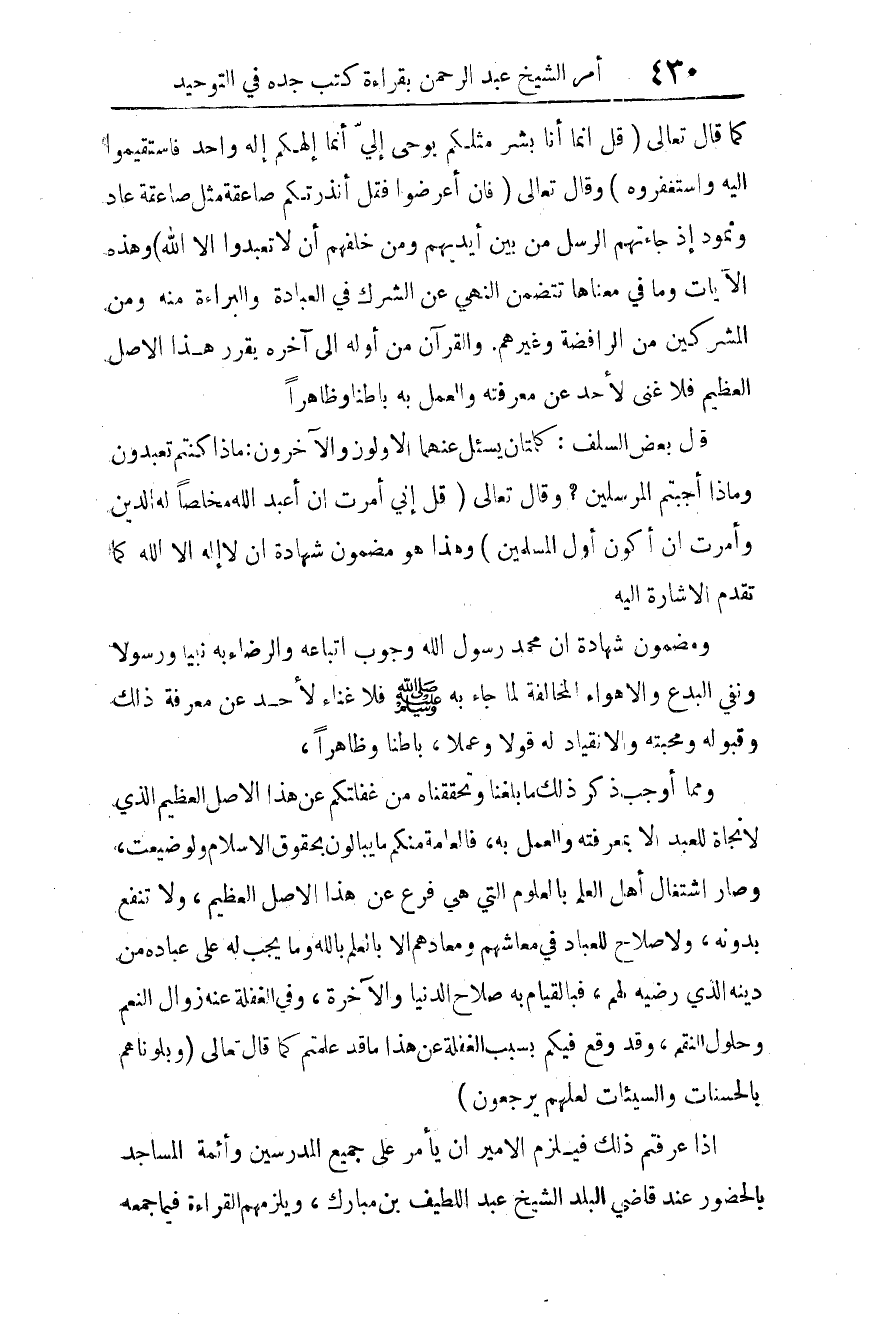 ٤٣٠ أمر الشيخ عبد الرحمن بقراءة كتب جده في التوحيد
كما قال تعالى ( قل انما أنا بشر مثلكم يوحى إليّ أنما إلهكم إله واحد فاستقيموا
اليه واستغفروه ) وقال تعالى ( فان أعرضوا فقل أنذرتكم صاعقة مثل صاعقة عاد
وثمود إذ جاءتهم الرسل من بين أيديهم ومن خلفهم أن لا تعبدوا الا الله) وهذه
الآيات وما في معناها تتضمن النهي عن الشرك في العبادة والبراءة منه ومن
المشركين من الرافضة وغيرهم. والقرآن من أوله الى آخره يقرر هـذا الاصل
العظيم فلا غنى لأحد عن معرفته والعمل به باطنا وظاهراً
قال بعض السلف : كلمتان يسئل عنهما الاولون والآخرون: ماذا كنتم تعبدون
وماذا أجبتم المرسلين ؟ وقال تعالى ( قل إني أمرت ان أعبد الله مخلصاً له الدين
وأمرت ان أكون أول المسلمين ) وهذا هو مضمون شهادة ان لا إله الا الله كما
تقدم الاشارة اليه
ومضمون شهادة ان محمد رسول الله وجوب اتباعه والرضاء به نبيا ورسولا
ونفي البدع والاهواء المخالفة لما جاء به ﷺ فلا غناء لأحـد عن معرفة ذلك
وقبوله ومحبته والانقياد له قولا وعملا ، باطنا وظاهراً ،
ومما أوجب ذكر ذلك ما بلغنا وتحققناه من غفلتكم عن هذا الاصل العظيم الذي
لا نجاة للعبد الا بمعرفته والعمل به، فالعامة منكم ما يبالون بحقوق الاسلام ولو ضيعت،
وصار اشتغال أهل العلم بالعلوم التي هي فرع عن هذا الاصل العظيم ، ولا تنفع
بدونه ، ولا صلاح للعباد في معاشهم ومعادهم الا بالعلم بالله وما يجب له على عباده من
دينه الذي رضيه لهم ، فبالقيام به صلاح الدنيا والآخرة ، وفي الغفلة عنه زوال النعم
وحلول النقم ، وقد وقع فيكم بسبب الغفلة عن هذا ما قد علمتم كما قال تعالى (وبلوناهم
بالحسنات والسيئات لعلهم يرجعون )
اذا عرفتم ذلك فيـلزم الامير ان يأمر على جميع المدرسين وأئمة المساجد
بالحضور عند قاضي البلد الشيخ عبد اللطيف بن مبارك ، ويلزمهم القراءة فيما جمعه